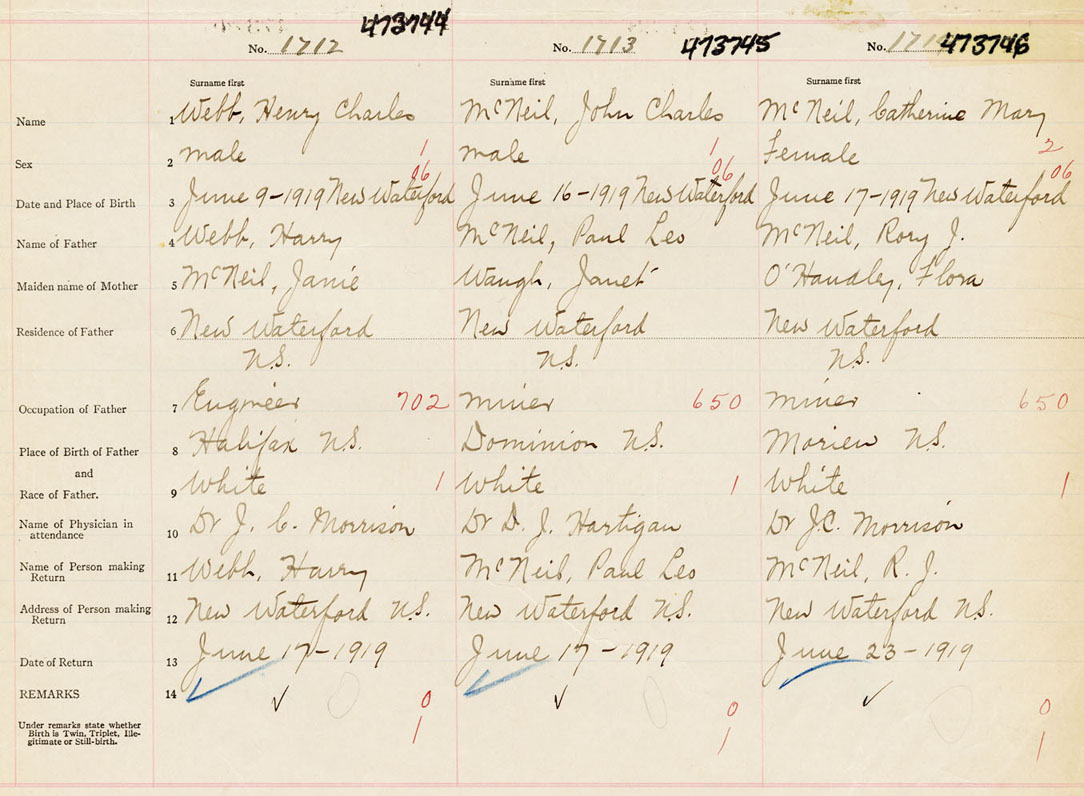 473744 473745 473746
No. 1712 No. 1713 No. 171
Surname first Surname first Surname first
Name 1 Webb, Henry Charles McNeil, John Charles McNeil, Catherine Mary
Sex 2 male 1 male 1 Female 2
06 06 06
Date and Place of Birth 3 June 9-1919 New Waterford June 16-1919 New Waterford June 17-1919 New Waterford
Name of Father 4 Webb, Harry McNeil, Paul Leo McNeil, Rory J.
Maiden name of Mother 5 McNeil, Janie Waugh, Janet O'Handley, Flora
Residence of Father 6 New Waterford New Waterford New Waterford
N.S. N.S. N.S.
Occupation of Father 7 Engineer 702 miner 650 miner 650
Place of Birth of Father 8 Halifax N.S. Dominion N.S. Morien N.S.
and
Race of Father. 9 White 1 White 1 White 1
Name of Physician in
attendance 10 Dr J. C. Morrison Dr D. J. Hartigan Dr J.C. Morrison
Name of Person making
Return 11 Webb, Harry McNeil, Paul Leo McNeil, R. J.
Address of Person making
Return 12 New Waterford N.S. New Waterford N.S. New Waterford N.S.
Date of Return 13 June 17-1919 June 17-1919 June 23-1919
REMARKS 14 0 0 0
Under remarks state whether
Birth is Twin, Triplet, Ille-
gitimate or Still-birth. 1 1 1